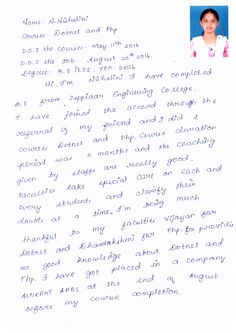 Name: N. Nithalini
Course: Dotnet and Php
D.O.J the course: May 11th 2016
D.O.J the Job: August 28th 2016
Degree: B.E I.E.E. YOP: 2016
Hi I'm Nithalini I have completed
B.E from Jeppiaar Engineering College.
I have joined the accord through the
referral of my friend and I did 2
courses Dotnet and Php. Course duration
period was 3 months and the coaching
given by staffs are really good.
Faculties take special care on each and
every students and clarify their
doubts at a time. I'm being much
thankful to my faculties Vijayan for
Dotnet and Dhanalakshmi for Php. for providing
me good knowledge about Dotnet and
Php. I have got placed in a company
LABS at the end of August
before my course completion.